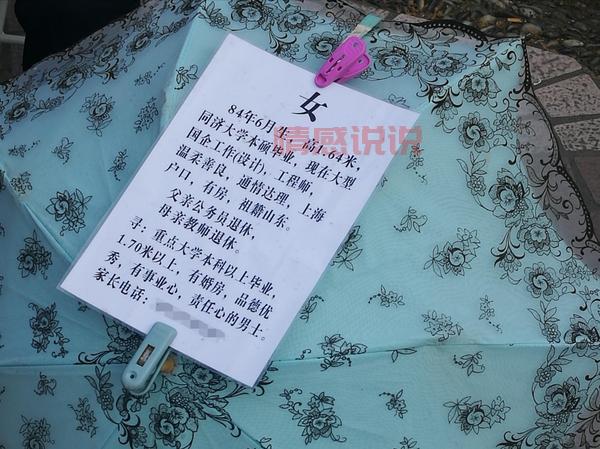 女
84年6月生，高1.64米，
同济大学本硕毕业，现在大型
国企工作(设计)，工程师，
温柔善良，通情达理，上海
户口，有房，祖籍山东。
父亲公务员退休，
母亲教师退休。
寻：重点大学本科以上毕业，
1.70米以上，有婚房，品德优
秀，有事业心，责任心的男士。
家长电话：
情感说说